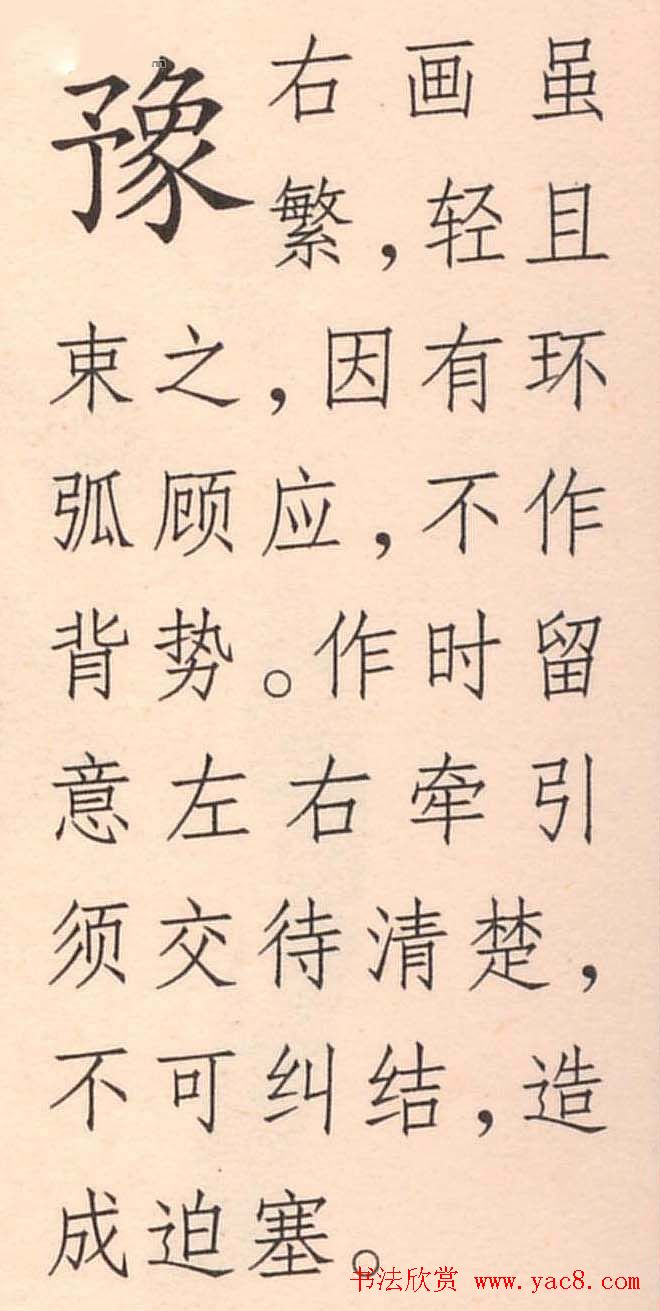 豫 右画虽
繁，轻且
束之，因有环
弧顾应，不作
背势。作时留
意左右牵引
须交待清楚，
不可纠结，造
成迫塞。
书法欣赏 www.yac8.com